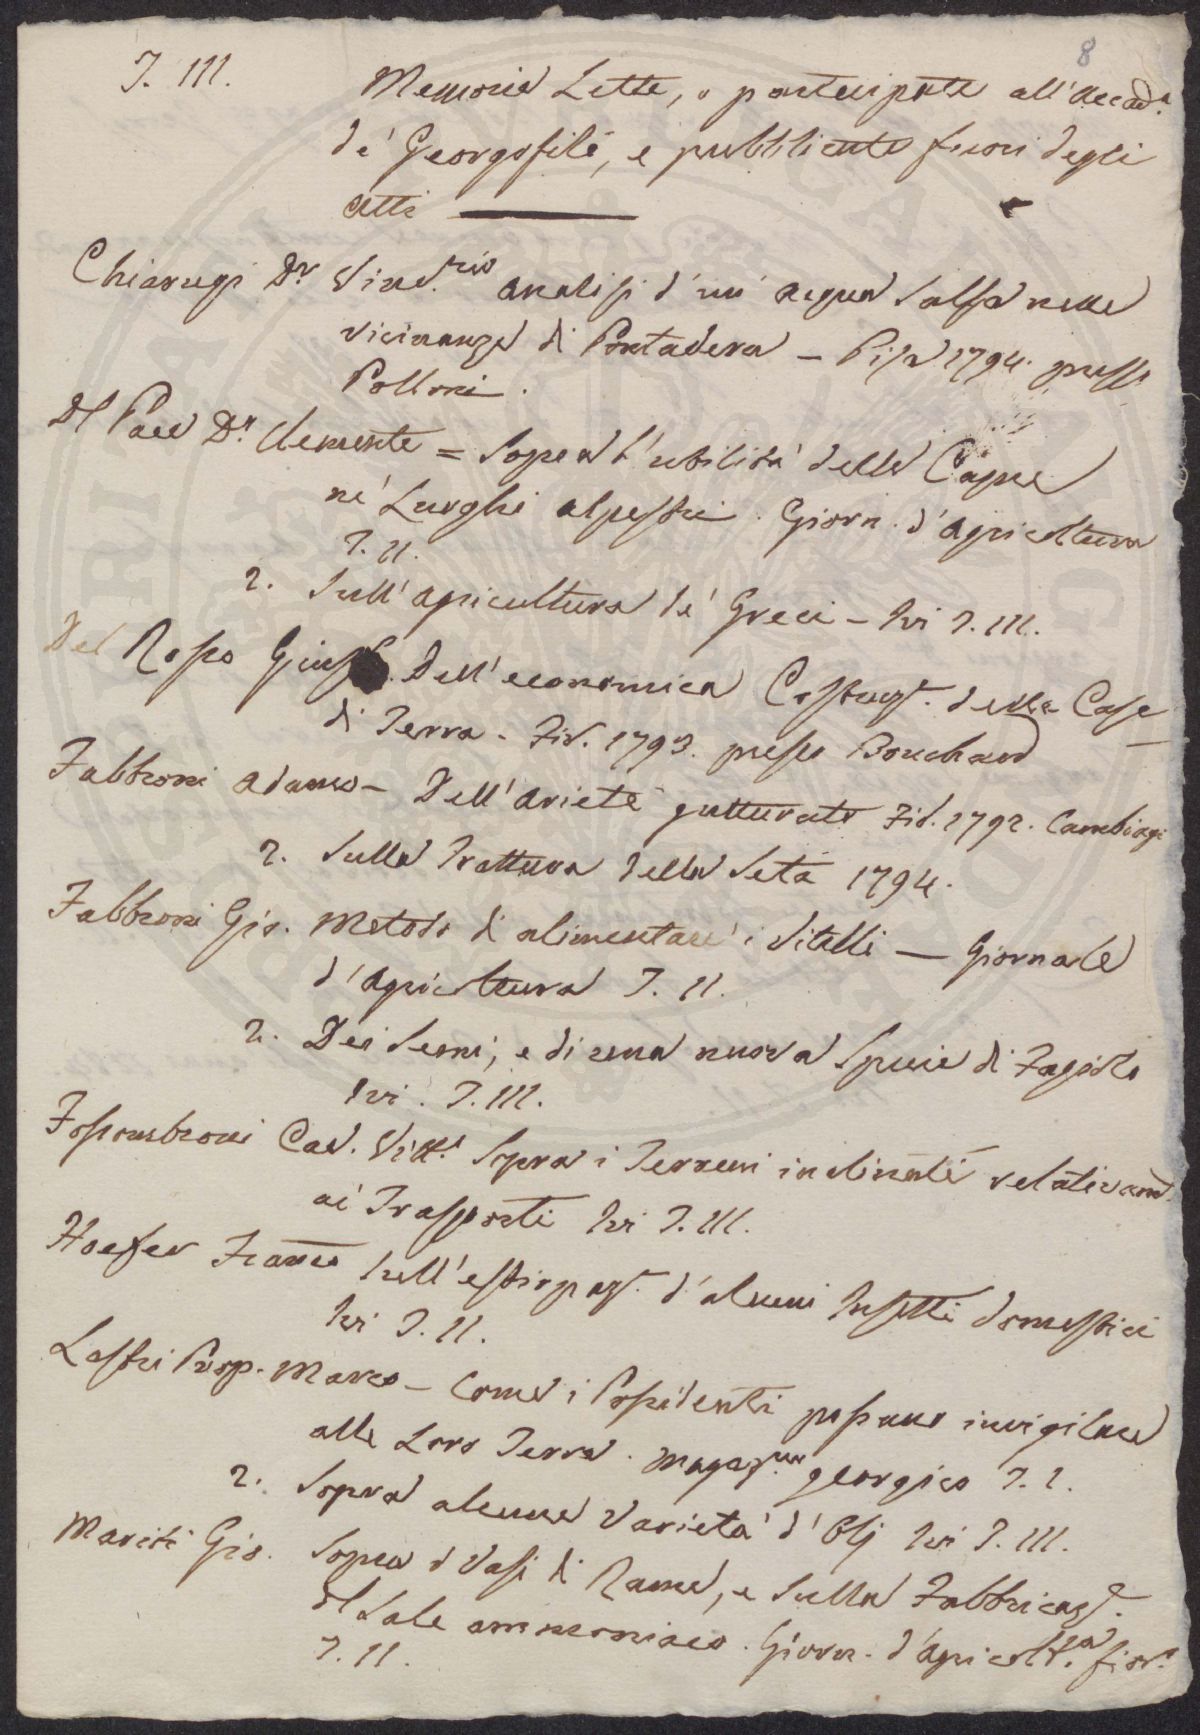 8
T. III.
Memorie Lette, o partecipate all'Accad.a
de' Georgofili, e pubblicate fuori degli
atti
Chiarugi Dr. Vinc.zio Analisi d'un' acqua salsa nelle
vicinanze di Pontadera - Pisa 1794. presso
Polloni.
Del Pace Dr. Clemente = Sopra l'utilità delle Capre
ne' Luoghi alpestri. Giorn. d'agricoltura
T. II.
2. Sull'agricultura de' Greci - Ivi T. III.
Del Rosso Gius. Dell'economica Costruz.e delle Case
di Terra - Fir. 1793. presso Bouchard
Fabbroni Adamo - Dell'Ariete gutturato Fir. 1792. Cambiagi
2. Sulla Trattura della Seta 1794.
Fabbroni Gio. Metodo di alimentare i Vitelli — Giornale
d'Agricoltura T. II.
2. Dei Semi, e di una nuova Specie di Fagiolo
Ivi. T. III.
Fossombroni Cav. Vitt.o Sopra i Terreni inclinati relativam.
ai Trasporti Ivi T. III.
Hoefer Franco Sull'estirpaz.e d'alcuni Insetti domestici
Ivi T. II.
Lastri Prop. Marco - Come i Possidenti possano invigilare
alle Loro Terre. Magaz.no georgico T. I.
2. Sopra alcune Varietà d'Olj Ivi T. III.
Mariti Gio. Sopra i Vasi di Rame, e Sulla Fabbricaz.e
del Sale ammoniaco. Giorn. d'agricolt.a fior.o
T. II.